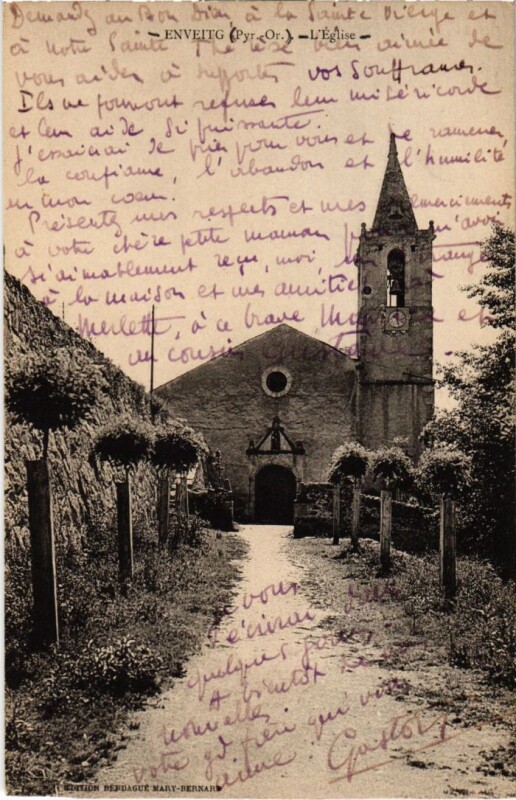 Demandez au Bon Dieu à la Sainte Vierge et
ENVEITG (Pyr.-Or.) - L'Église
à notre Sainte Thérèse bien aimée de
vous aider à supporter vos souffrances.
Ils ne pourront refuser leur miséricorde
et leur aide si puissante.
J'essaierai de prier pour vous et de ramener
la confiance, l'abandon et l'humilité
en mon coeur.
Présentez mes respects et mes remerciements
à votre chère petite maman qui m'avoir
si aimablement reçu, moi, un étranger
à la maison et mes amitiés à
Merlette, à ce brave et
au cousin Gustave.
Je vous
écrirai dans
quelques jours.
A bientôt de
nouvelles.
votre gd frère qui vous
aime Gaston
EDITION BERDAGUÉ MARY-BERNARD